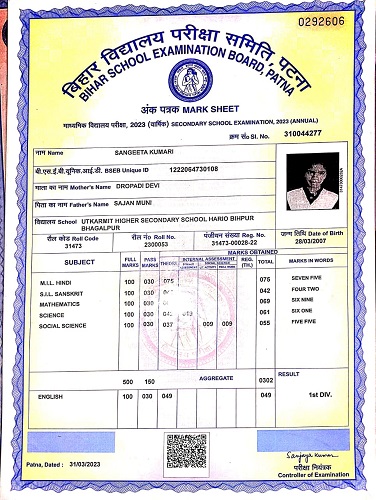 0292606
बिहार विद्यालय परीक्षा समिति, पटना
BIHAR SCHOOL EXAMINATION BOARD, PATNA
अंक पत्रक MARK SHEET
माध्यमिक विद्यालय परीक्षा, 2023 (वार्षिक) SECONDARY SCHOOL EXAMINATION, 2023 (ANNUAL)
क्रम सं० Sl. No. 310044277
नाम Name SANGEETA KUMARI
बी.एस.ई.बी.यूनिक.आई.डी. BSEB Unique ID 1222064730108
माता का नाम Mother's Name DROPADI DEVI
पिता का नाम Father's Name SAJAN MUNI
विद्यालय School UTKARMIT HIGHER SECONDARY SCHOOL HARIO BIHPUR
BHAGALPUR
रौल कोड Roll Code रौल नं० Roll No. पंजीयन संख्या Reg. No. जन्म तिथि Date of Birth
31473 2300053 31473-00028-22 28/03/2007
MARKS OBTAINED
SUBJECT FULL MARKS PASS MARKS THEORY INTERNAL ASSESSMENT REG. (TH.) TOTAL MARKS IN WORDS
M.I.L. HINDI 100 030 075 075 SEVEN FIVE
S.I.L. SANSKRIT 100 030 042 FOUR TWO
MATHEMATICS 100 030 069 SIX NINE
SCIENCE 100 030 019 061 SIX ONE
SOCIAL SCIENCE 100 030 037 009 009 055 FIVE FIVE
500 150 AGGREGATE 0302 RESULT
ENGLISH 100 030 049 049 1st DIV.
Patna, Dated : 31/03/2023
Sanjay Kumar
परीक्षा नियंत्रक
Controller of Examination